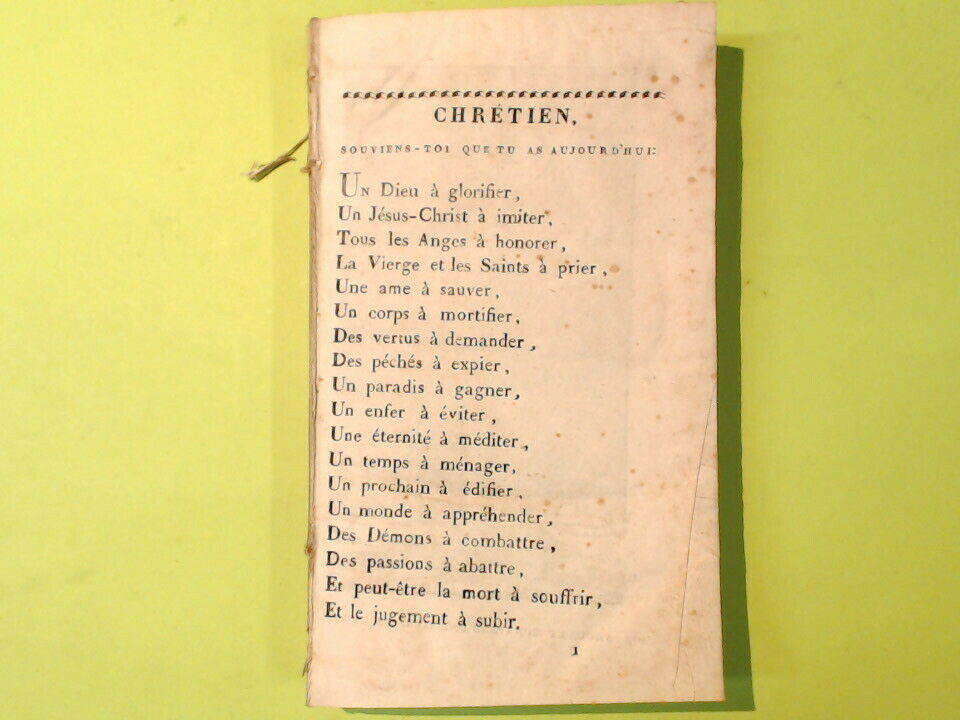 CHRÉTIEN,
SOUVIENS-TOI QUE TU AS AUJOURD'HUI:
UN Dieu à glorifier,
Un Jésus-Christ à imiter,
Tous les Anges à honorer,
La Vierge et les Saints à prier,
Une ame à sauver,
Un corps à mortifier,
Des vertus à demander,
Des péchés à expier,
Un paradis à gagner,
Un enfer à éviter,
Une éternité à méditer,
Un temps à ménager,
Un prochain à édifier,
Un monde à appréhender,
Des Démons à combattre,
Des passions à abattre,
Et peut-être la mort à souffrir,
Et le jugement à subir.
1